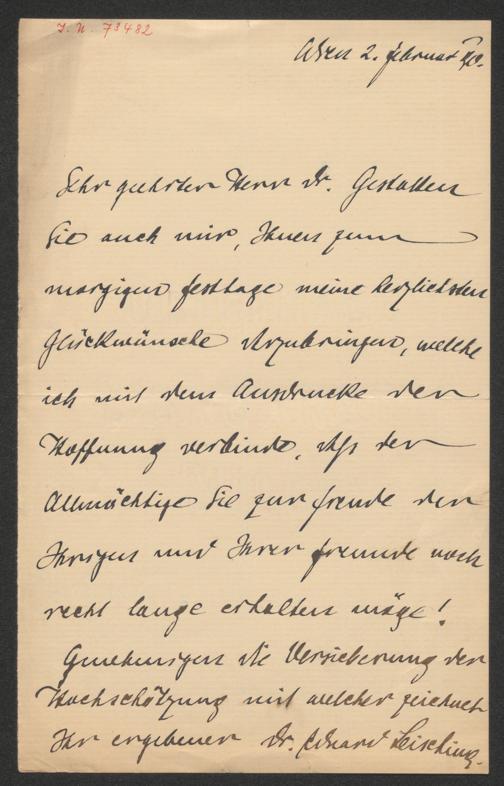 I. N. 73482
Wien 2. Februar 90.
Sehr geehrter Herr Dr. Gestatten
Sie auch mir, Ihnen zum
morgigen Festtage meine herzlichsten
Glückwünsche darzubringen, welche
ich mit dem Ausdrucke der
Hoffnung verbinde, daß der
Allmächtige Sie zur Freude der
Ihrigen und Ihrer Freunde noch
recht lange erhalten möge!
Genehmigen die Versicherung der
Hochschätzung mit welcher zeichnet
Ihr ergebener Dr. Eduard Leisching.